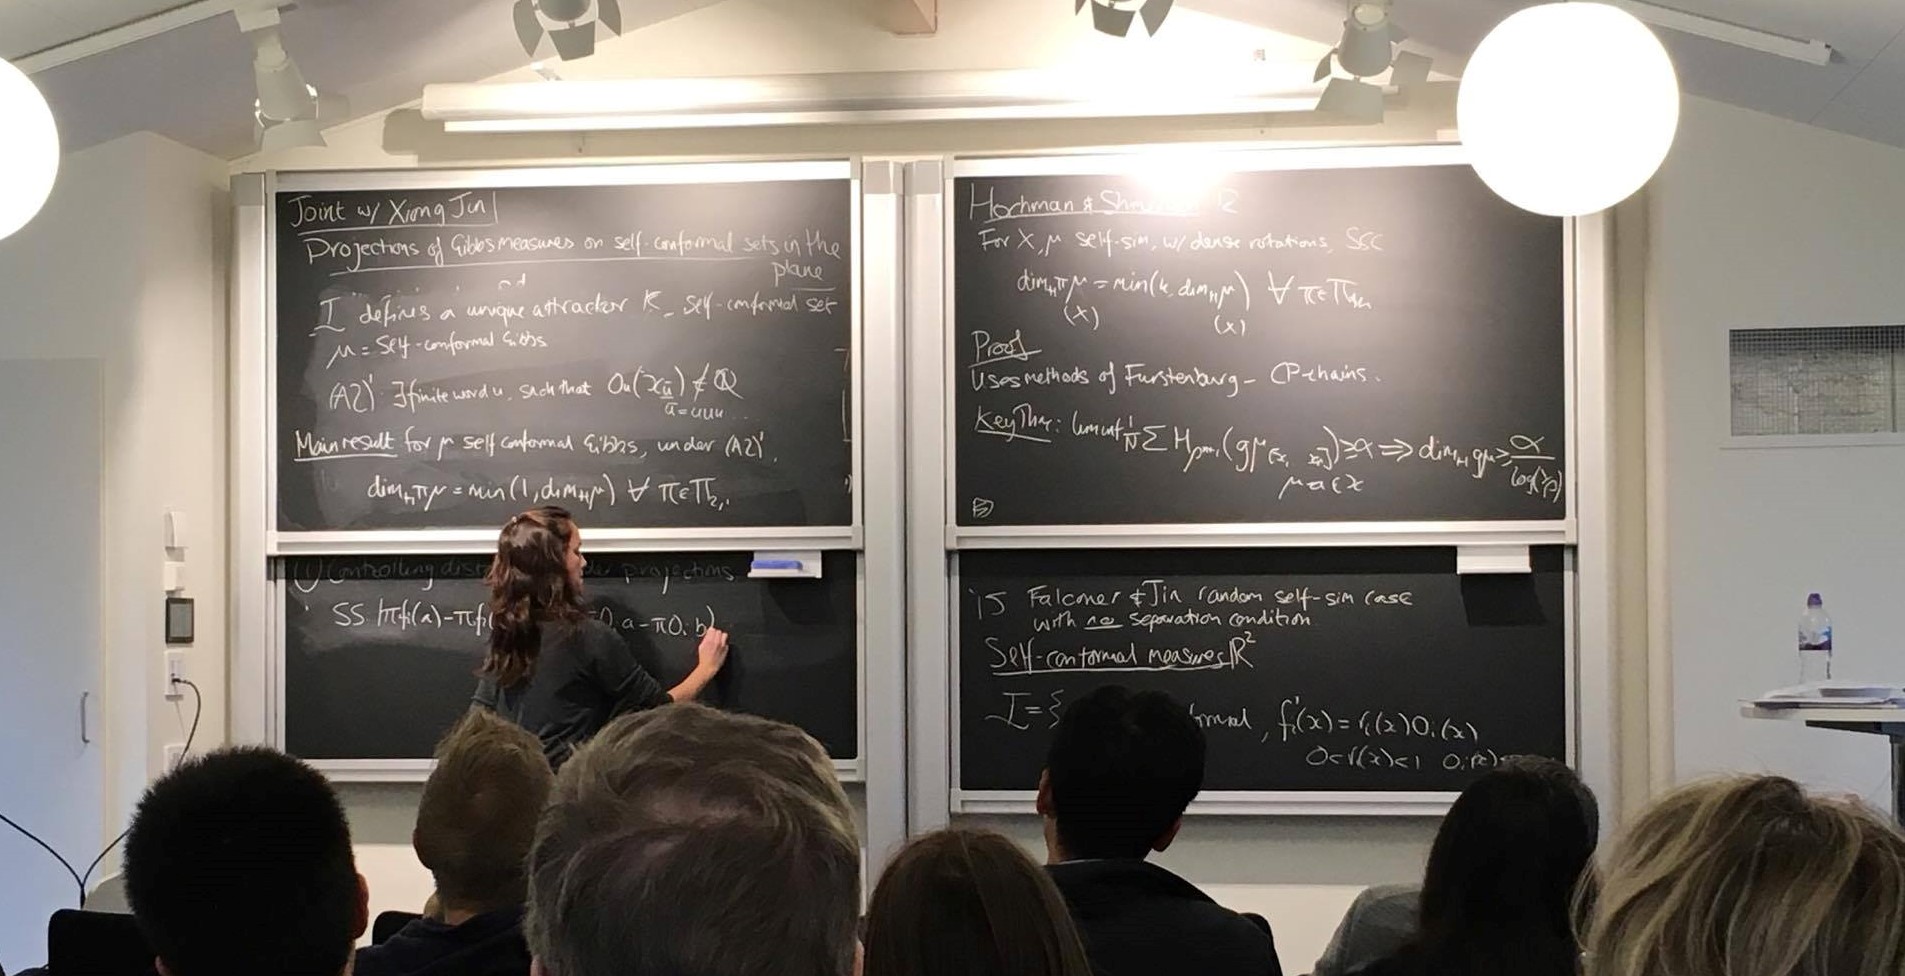 Joint w/ Xiong Jin
Projections of Gibbs measures on self-conformal sets in the
plane
I defines a unique attractor K - self-conformal set
μ = self-conformal Gibbs
(A2)' ∃ finite word u, such that O_u(x_ū) ∉ ℚ
ū = uuu...
Main result for μ self conformal Gibbs, under (A2)',
dim_H πμ = min(1, dim_H μ) ∀ π ∈ Π_2,1
(1) Controlling under projections
SS |πf_i(a) - πf_i( a - πO_i b)
Hochman & 12
For X, μ self-sim, w/ dense rotations, SSC
dim_H πμ = min(k, dim_H μ) ∀ π ∈ Π
(X) (X)
Proof
Uses methods of Furstenburg - CP-chains.
Key Thm: liminf 1/N Σ H (gμ ) ≥ α ⇒ dim_H gμ ≥ α/log(1/ρ)
μ a.e. x
'15 Falconer & Jin random self-sim case
with no separation condition
Self-conformal measures ℝ²
I = { , f_i'(x) = r_i(x)O_i(x)
0 < r_i(x) < 1 O_i(x)